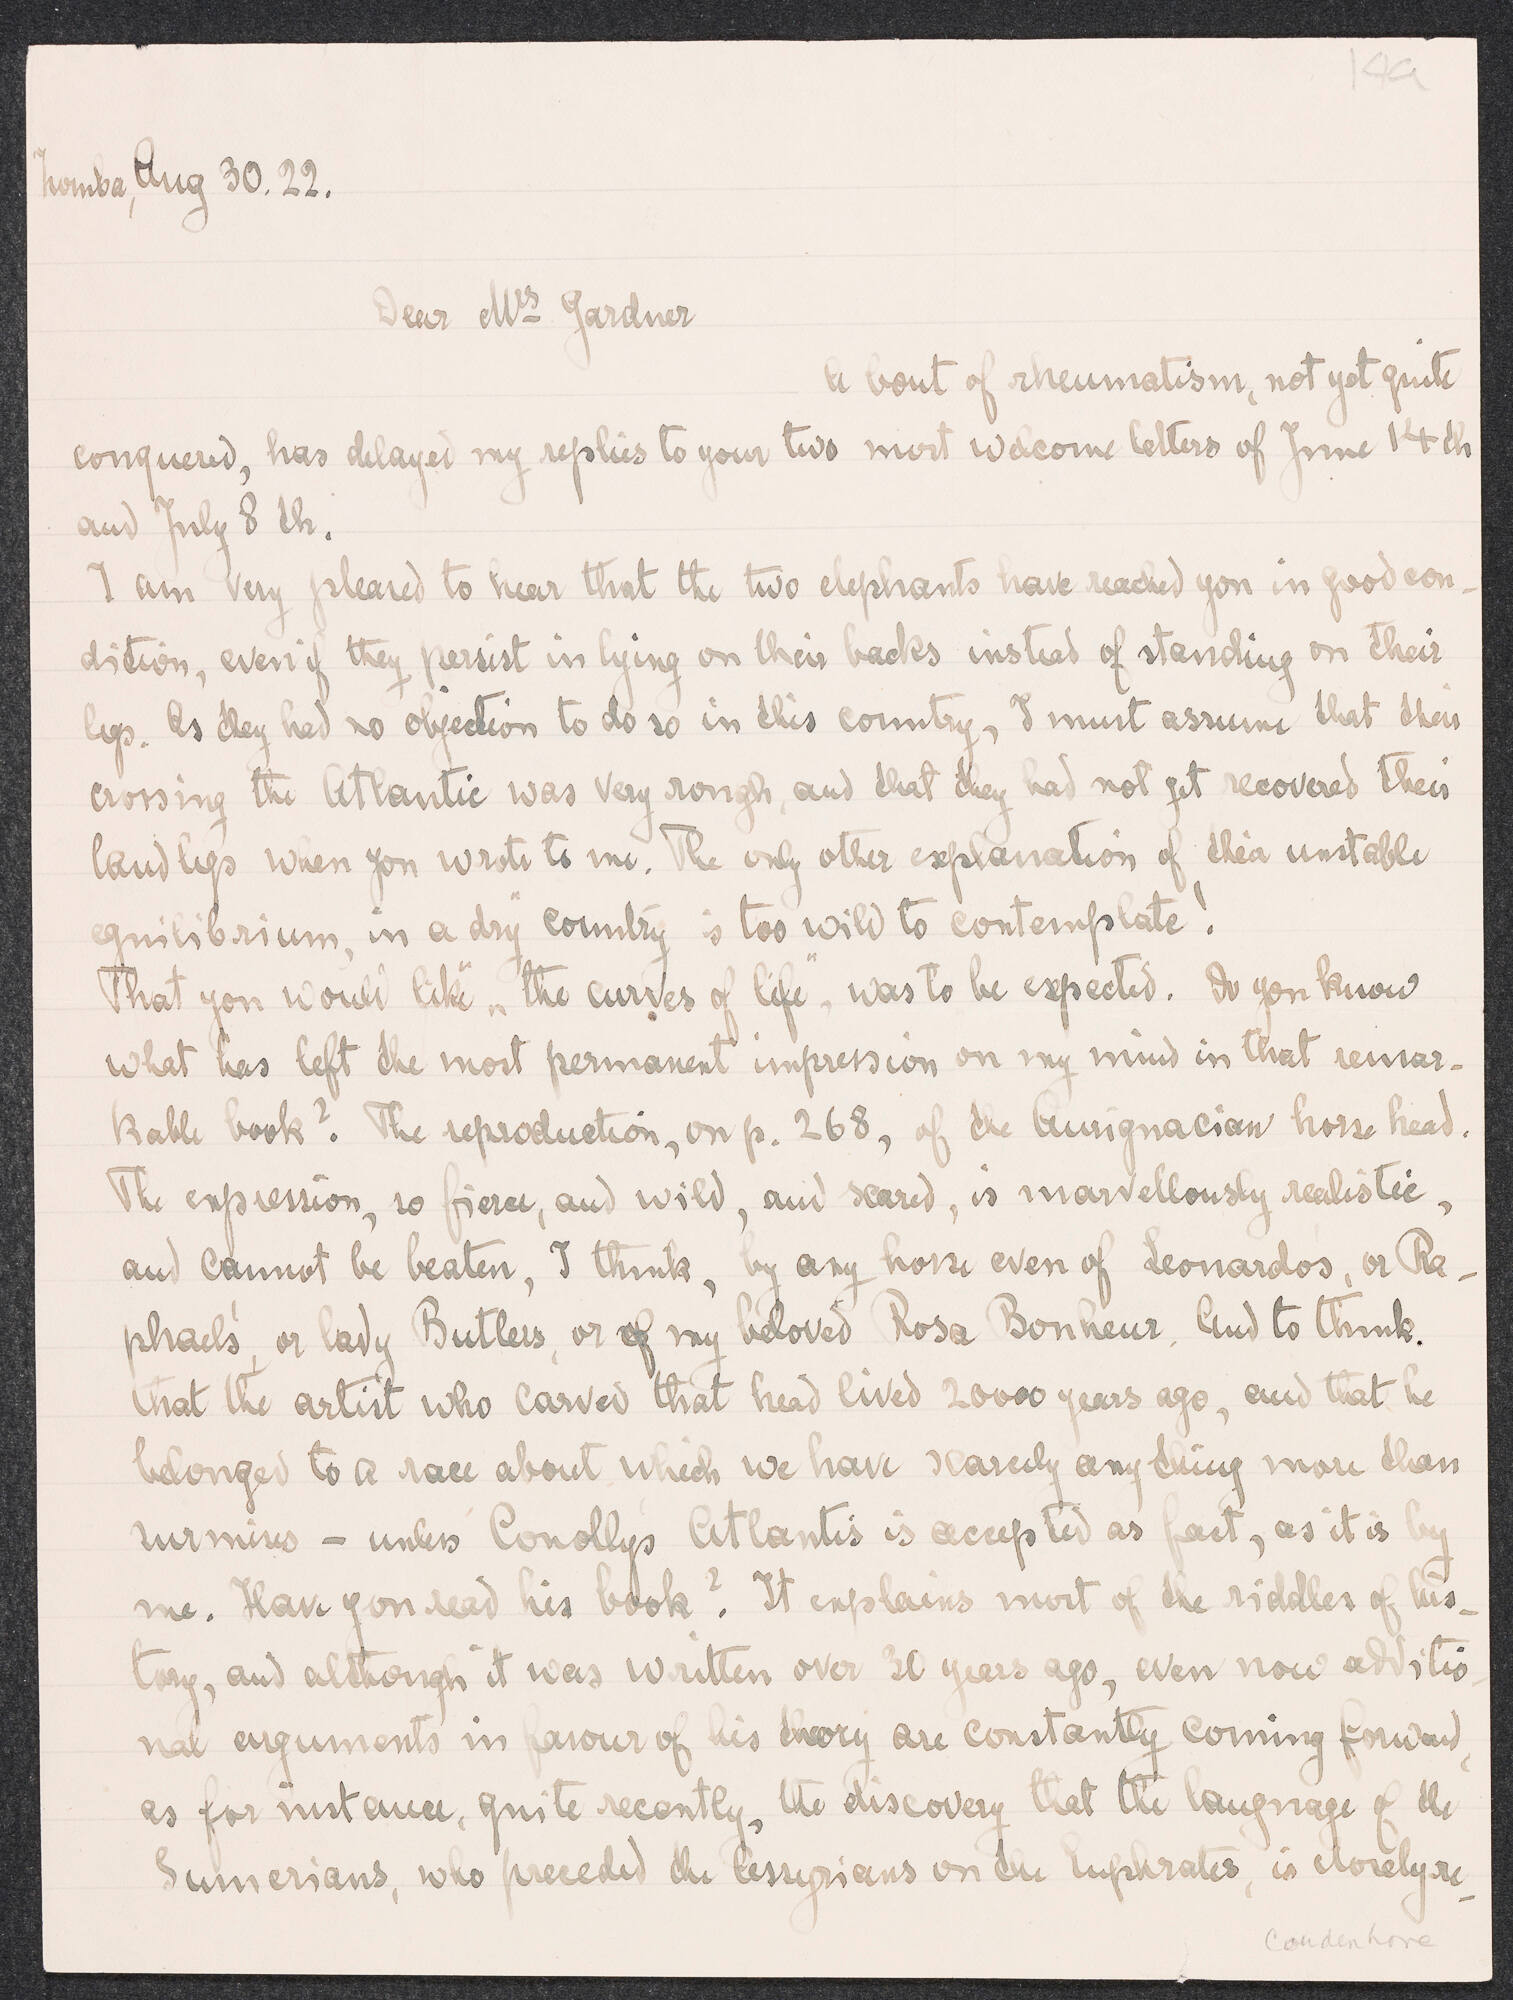 149
Zomba, Aug 30. 22.
Dear Mrs Gardner
A bout of rheumatism, not yet quite
conquered, has delayed my replies to your two most welcome letters of June 14th
and July 8 th.
I am very pleased to hear that the two elephants have reached you in good con-
dition, even if they persist in lying on their backs instead of standing on their
legs. As they had no objection to do so in this country, I must assume that their
crossing the Atlantic was very rough, and that they had not yet recovered their
land legs when you wrote to me. The only other explanation of their unstable
equilibrium, in a "dry" country is too wild to contemplate!
That you would like „the curves of life", was to be expected. Do you know
what has left the most permanent impression on my mind in that remar-
kable book? The reproduction, on p. 268, of the Aurignacian horse head.
The expression, so fierce, and wild, and scared, is marvellously realistic,
and cannot be beaten, I think, by any horse even of Leonardos, or Ra-
phaels', or lady Butlers, or of my beloved Rosa Bonheur. And to think
that the artist who carved that head lived 20000 years ago, and that he
belonged to a race about which we have scarcely anything more than
surmises – unless Conollys Atlantis is accepted as fact, as it is by
me. Have you read his book? It explains most of the riddles of his-
tory, and although it was written over 30 years ago, even now additio-
nal arguments in favour of his theory are constantly coming forward,
as for instance, quite recently, the discovery that the language of the
Sumerians, who preceded the Assyrians on the Euphrates, is closely re-
Coudenhove